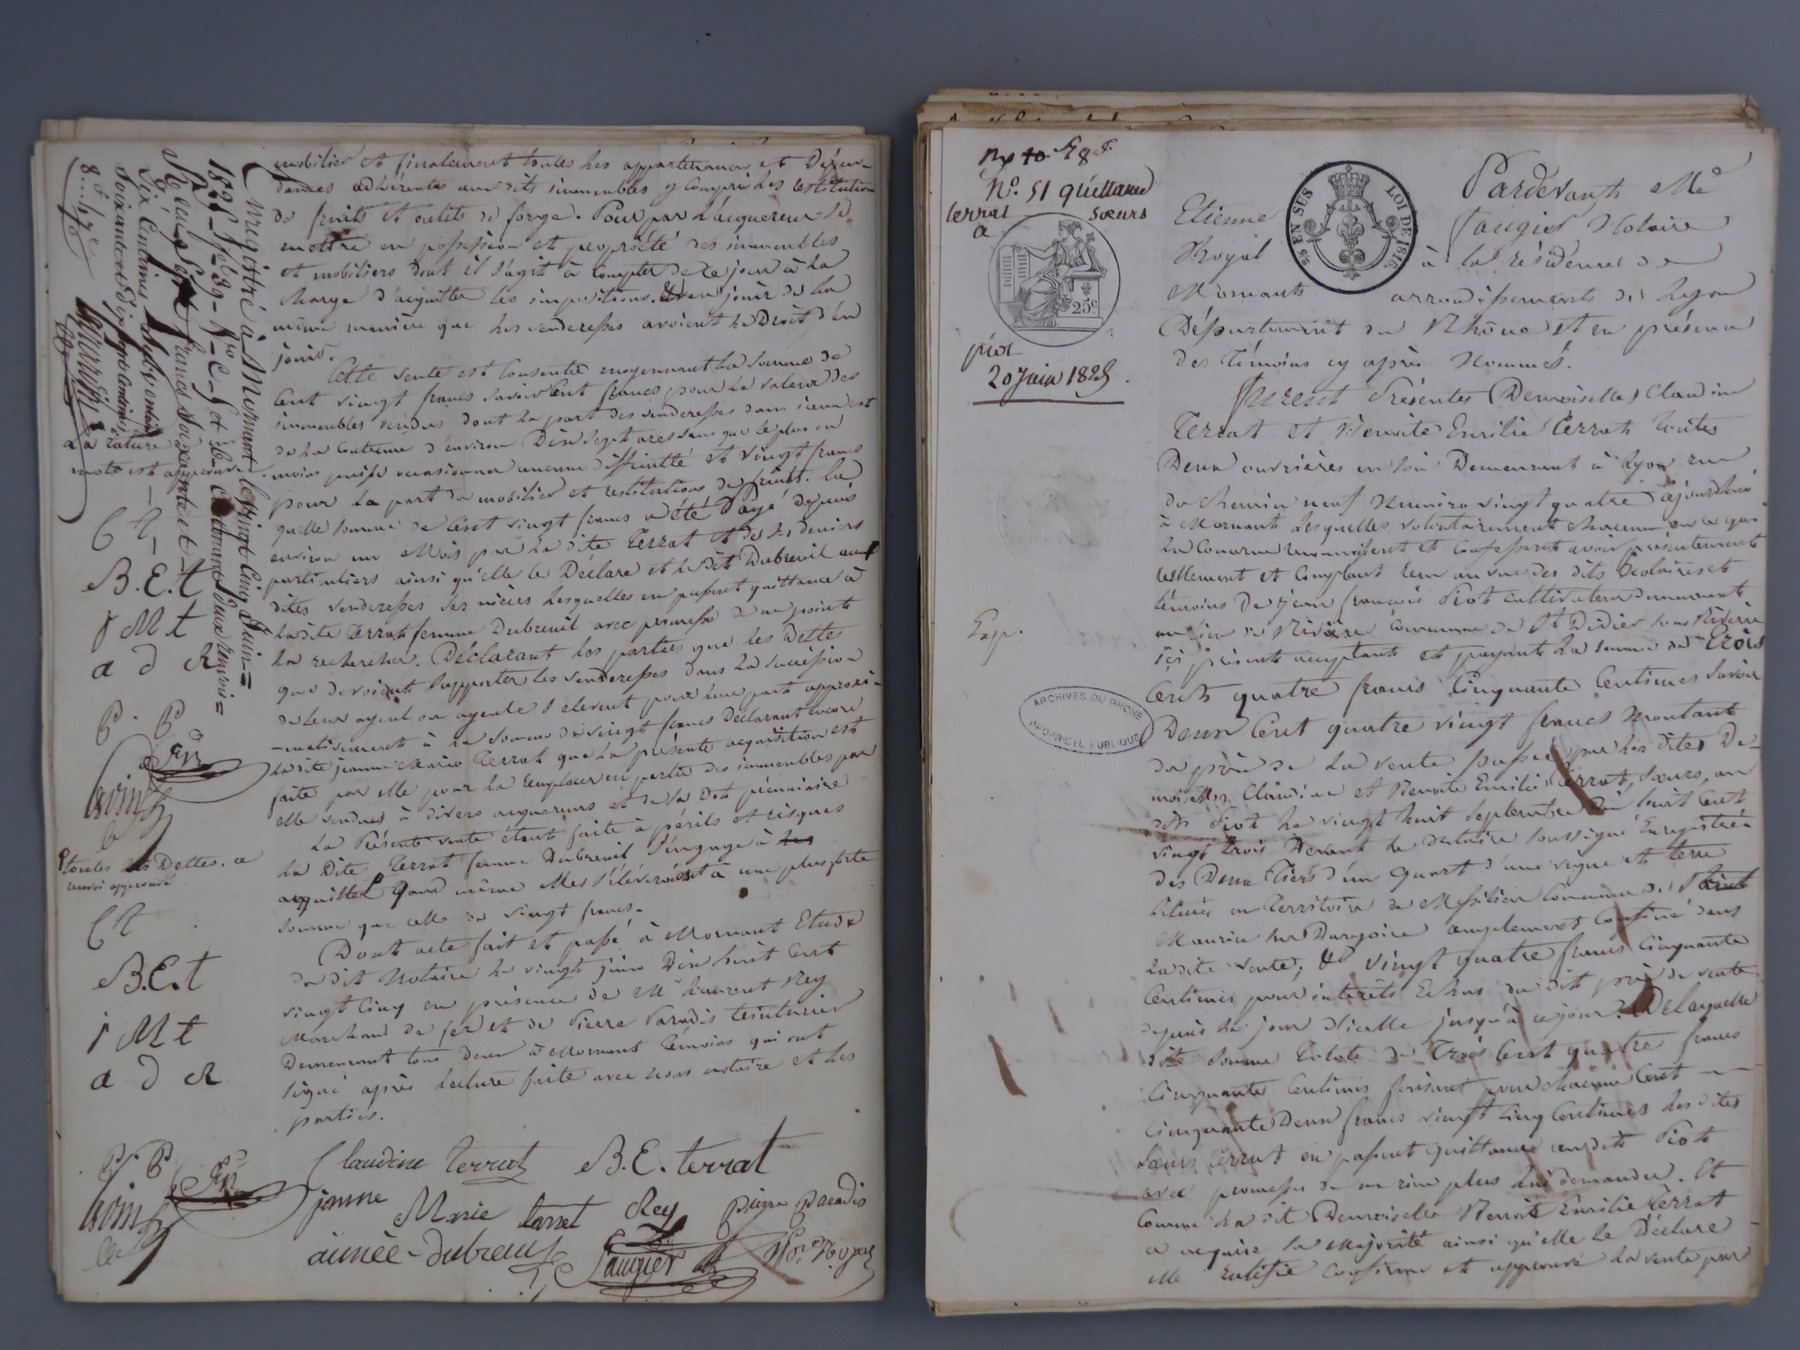 mobilier et finalement toutes les appartenances et Dépen-
dances adhérentes aux dits immeubles y Compris les restitutions
de fruits et outils de forge. Pour par l'acquereur se
mettre en possession et propriété des immeubles
et mobiliers dont il s'agit à Compter de ce jour à la
charge d'acquitter les impositions. et en jouir de la
même manière que les venderesses avoient le Droit d'en
jouir.
Cette vente est Consentie moyennant la Somme de
Cent vingt francs savoir Cent francs pour la valeur des
immeubles vendus dont la part des venderesses dans iceux est
de la Contenue d'environ Dix Sept ares sans que le plus ou
moins puisse occasionner aucune difficulté et vingt francs
pour la part du mobilier et restitutions de fruits. la
quelle somme de Cent vingt francs a été Payé depuis
environ un Mois par la dite Terrat et de ses deniers
particuliers ainsi qu'elle le Déclare et le dit Dubreuil aux
dites venderesses ses nièces lesquelles en passent quittance à
la dite Terrat femme Dubreuil avec promesse de ne point
la rechercher. Déclarant les parties que les Dettes
que devoient supporter les venderesses dans la succession
de leur ayeul ou ayeule S'élevent pour leur part approxi-
-mativement à la Somme de vingt francs Déclarant encore
la dite jeanne Marie Terrat que la présente acquisition est
faite par elle pour la remplacer en partie des immeubles par
elle vendus à divers acquereurs et de sa Dot pécuniaire
La Présente vente étant faite à périls et risques
la Dite Terrat femme Dubreuil s'engage à
acquitter quand même elles s'éléveroient à une plus forte
somme que celle de vingt francs.
Dont acte fait et passé à Mornant Etude
du dit Notaire le vingt juin Dix huit Cent
vingt Cinq en présence de Mr laurent Rey
Marchand de fer et de Pierre Paradis teinturier
Demeurant tous deux à Mornant témoins qui ont
signé après lecture faite avec nous notaire et les
parties.
Claudine terrat B.E. terrat
jeanne Marie terrat Rey Pierre Paradis
ainée-dubreuil Saugier
Enregistré à Mornant le vingt Cinq Juin =
soixante et
La rature
mots est approuvé
C t
B. E. t
j M t
a d R
P. P
toutes les Dettes. a
aussi approuvé
C t
B. E. t
j M t
a d R
P. P
N° 51 quittance
terrat Sœurs
a
25c
piot
20 Juin 1825.
Exp.
ARCHIVES DU RHONE
PROPRIÉTÉ PUBLIQUE
25 EN SUS
LOI DE 1816.
Pardevant Me
Etienne Saugier Notaire
Royal à la résidence de
Mornant arrondissement de Lyon
Département du Rhône et en présence
des Témoins cy après Nommés.
furent Présentes Demoiselles Claudine
Terrat et Benoite Emilie Terrat toutes
Deux ouvrières en soie Demeurant à Lyon rue
du Chemin neuf Numéro vingt quatre
à Mornant lesquelles volontairement chacune en ce qui
la Concerne reconnoissent et Confessent avoir présentement
réellement et Comptant reçu au vue des dits Notaire et
témoins De jean françois Piot cultivateur demeurant
au lieu de Rivière Commune de St Didier sous Riverie
ici présent acceptant et payant la somme de Trois
Cents quatre francs Cinquante Centimes savoir
Deux Cent quatre vingt francs Montant
du prix de la vente passée par les dites De-
moiselles Claudine et Benoite Emilie Terrat, Sœurs, au
dit Piot le vingt huit Septembre Dix huit Cent
vingt trois Devant le Notaire soussigné Enregistrée
des Deux Tiers d'un Quart d'une vigne et terre
située au territoire de Commune de Saint
Maurice sur Dargoire amplement Confiné dans
la dite vente; et vingt quatre francs Cinquante
Centimes pour intérêts Echus du dit prix de vente
depuis le jour d'icelle jusqu'à ce jour. De laquelle
dite somme totale de Trois Cent quatre francs
Cinquante Centimes faisant pour chacune Cent
Cinquante Deux francs vingt Cinq Centimes les dites
Sœurs Terrat en passent quittance au dit Piot
avec promesse de ne rien plus lui demander. Et
Comme la dite Demoiselle Benoite Emilie Terrat
a acquise sa Majorité ainsi qu'elle le Déclare
elle Ratifie Confirme et approuve la vente par